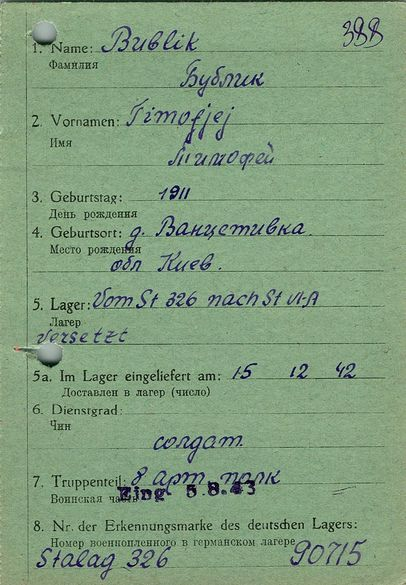 388
1. Name: Bublik
Фамилия
Бублик
2. Vornamen: Timofjej
Имя
Тимофей
3. Geburtstag: 1911
День рождения
4. Geburtsort: д. Ванцетивка.
Место рождения
обл Киев.
5. Lager: Vom St 326 nach St VI-A
Лагер
versetzt
5a. Im Lager eingeliefert am: 15 12 42
Доставлен в лагер (число)
6. Dienstgrad:
Чин
солдат.
7. Truppenteil: 8 арт. полк
Воинская часть
Eing 5.8.43
8. Nr. der Erkennungsmarke des deutschen Lagers:
Номер военнопленного в германском лагере
Stalag 326 90715